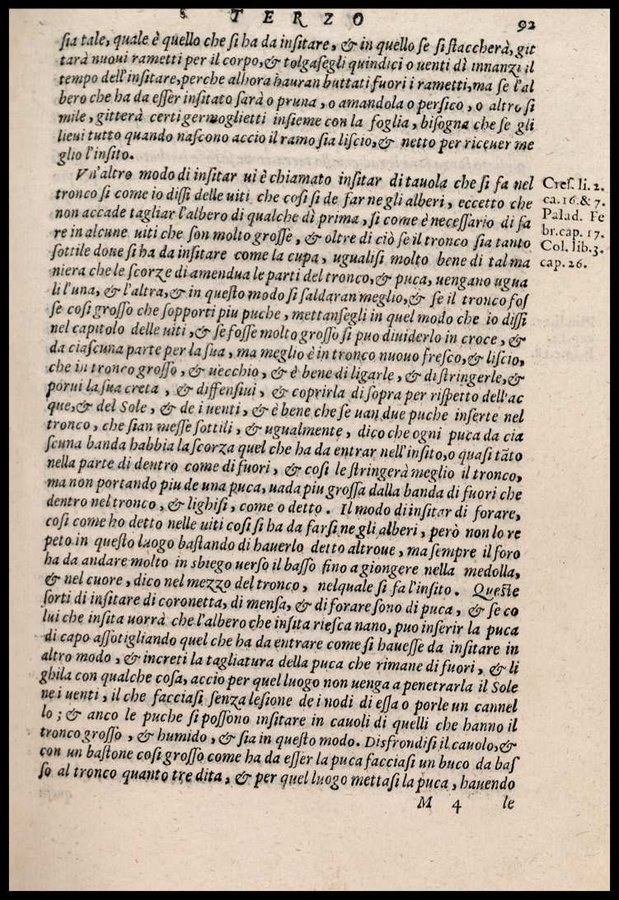 TERZO 92
sia tale, quale è quello che si ha da insitare, & in quello se si staccherà, git
tarà nuoui rametti per il corpo, & tolgasegli quindici o uenti dì innanzi il
tempo dell'insitare, perche alhora hauran buttati fuori i rametti, ma se l'al
bero che ha da esser insitato sarà o pruna, o amandola o persico, o altro si
mile, gitterà certi germoglietti insieme con la foglia, bisogna che se gli
lieui tutto quando nascono accio il ramo sia liscio, & netto per riceuer me
glio l'insito.
Vn'altro modo di insitar ui è chiamato insitar di tauola che si fa nel
tronco si come io dissi delle uiti che cosi si de far ne gli alberi, eccetto che
non accade tagliar l'albero di qualche dì prima, si come è necessario di fa
re in alcune uiti che son molto grosse, & oltre di ciò se il tronco sia tanto
sottile doue si ha da insitare come la cupa, ugualisi molto bene di tal ma
niera che le scorze di amendua le parti del tronco, & puca, uengano ugua
li l'una, & l'altra, & in questo modo si saldaran meglio, & se il tronco fos
se cosi grosso che sopporti piu puche, mettansegli in quel modo che io dissi
nel capitolo delle uiti, & se fosse molto grosso si puo diuiderlo in croce, &
da ciascuna parte per la sua, ma meglio è in tronco nuouo fresco, & liscio,
che in tronco grosso, & uecchio, & è bene di ligarle, & di stringerle, &
porui la sua creta, & diffensiui, & coprirla di sopra per rispetto dell'ac
que, & del Sole, & de i uenti, & è bene che se uan due puche inserte nel
tronco, che sian messe sottili, & ugualmente, dico che ogni puca da cia
scuna banda habbia la scorza quel che ha da entrar nell'insito, o quasi tãto
nella parte di dentro come di fuori, & cosi le stringerà meglio il tronco,
ma non portando piu de una puca, uada piu grossa dalla banda di fuori che
dentro nel tronco, & lighisi, come o detto. Il modo di insitar di forare,
cosi come ho detto nelle uiti cosi si ha da farsi ne gli alberi, però non lo re
peto in questo luogo bastando di hauerlo detto altroue, ma sempre il foro
ha da andare molto in sbiego uerso il basso fino a giongere nella medolla,
& nel cuore, dico nel mezzo del tronco, nelquale si fa l'insito. Queste
sorti di insitare di coronetta, di mensa, & di forare sono di puca, & se co
lui che insita uorrà che l'albero che insita riesca nano, puo inserir la puca
di capo assotigliando quel che ha da entrare come si hauesse da insitare in
altro modo, & increti la tagliatura della puca che rimane di fuori, & li
ghila con qualche cosa, accio per quel luogo non uenga a penetrarla il Sole
ne i uenti, il che facciasi senza lesione de i nodi di essa o porle un cannel
lo; & anco le puche si possono insitare in cauoli di quelli che hanno il
tronco grosso, & humido, & sia in questo modo. Disfrondisi il cauolo, &
con un bastone cosi grosso come ha da esser la puca facciasi un buco da bas
so al tronco quanto tre dita, & per quel luogo mettasi la puca, hauendo
M 4 le
Cres. li. 2.
ca. 16. & 7.
Palad. Fe
br. cap. 17.
Col. lib. 3.
cap. 26.